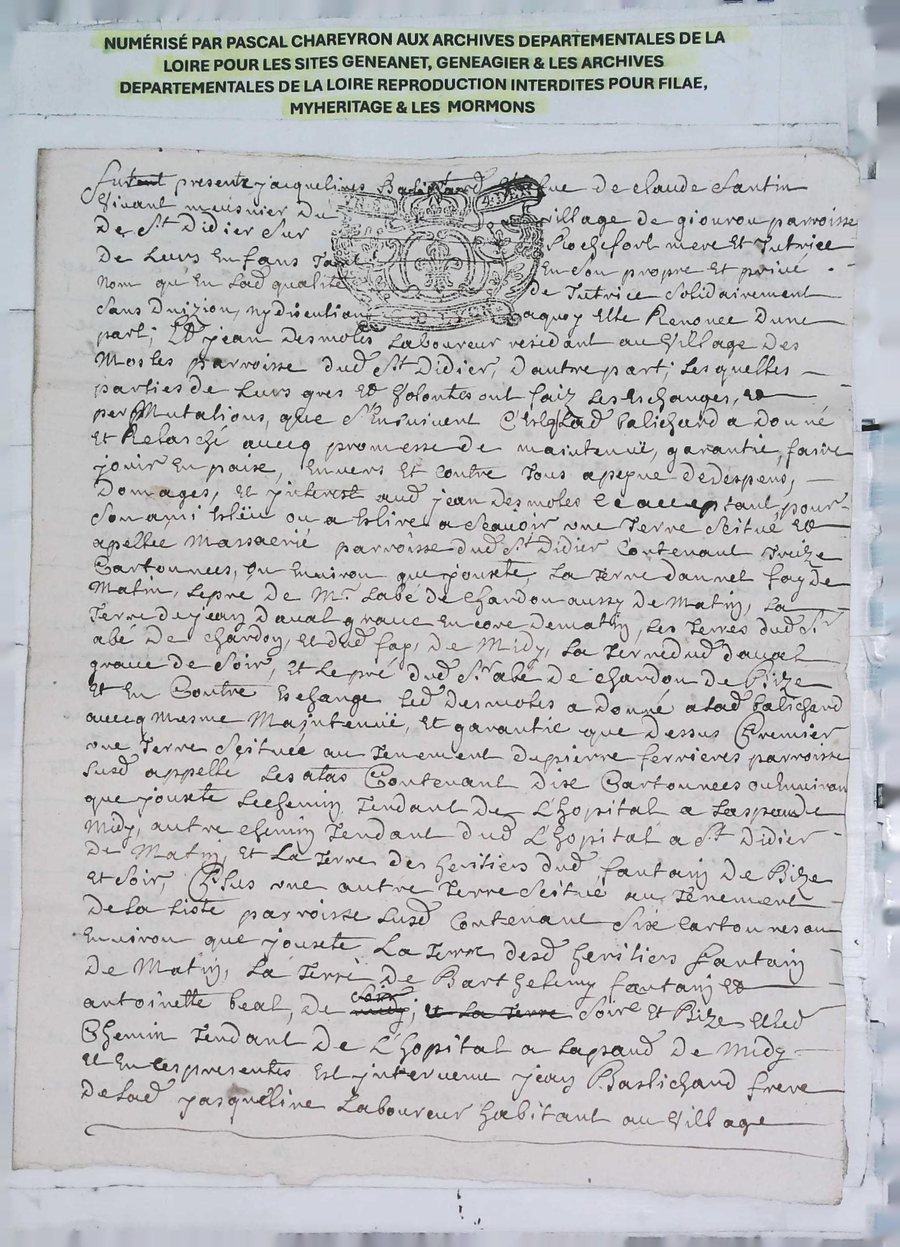 NUMÉRISÉ PAR PASCAL CHAREYRON AUX ARCHIVES DEPARTEMENTALES DE LA
LOIRE POUR LES SITES GENEANET, GENEAGIER & LES ARCHIVES
DEPARTEMENTALES DE LA LOIRE REPRODUCTION INTERDITES POUR FILAE,
MYHERITAGE & LES MORMONS
presente jacqueline de claude fantin
Vivant meusnier Du village de giourou parroisse
De St Didier Sur Rochefort mere Et Tutrice
De Leurs Enfans Tant En Son propre Et privé
Nom qu'En Lad qualité De Tutrice Solidairement
Sans Divizion, ny discution aquoy Elle Renonce Dune
part; Et jean Desmoles Laboureur residant au Village Des
Moles parroisse dud St Didier, Dautre part; Lesquelles
parties De Leurs gres Et Volontes ont fait Les Eschanges, Et
perMutations, que S'Ensuivent C'Est Lad balichard a Donné
Et Relasché avecq promesse de maintenüe, garantie, faire
jouir En paix, Envers Et Contre Tous apeyne De despens,
Domages, Et jnterest aud jean Desmoles acceptant, pour
Son ami Esleu ou a Eslire a Scavoir une Terre Scitué Et
apellée parroisse dud St Didier Contenant Treize
Cartonnees, ou Environ que jouxte, La Terre dannet fay de
Matin, Lepré De Mr Labé de Chardon aussy De Matin, La
Terre de jean Daval grave Encore De matin, Les Terres dud Sr
abé De Chardon, Et dud fay, De Midy, La Terre dud Daval
grave de Soir, Et Le pré dud Sr abé De Chardon De Bize
Et En Contre Eschange led Desmoles a Donné a lad balichard
avecq mesme Maintenüe, Et garantie que Dessus Premier
une Terre Scituée au Tenement Dupierre ferrieres parroisse
Susd appellé Les atas Contenant Dix Cartonnees ou Environ
que jouxte Le chemin Tendant De L'hopital a De
Midy, autre chemin Tendant dud L'hopital a St Didier
De Matin, Et La Terre Des heritiers dud fantain De Bize
Et Soir, Plus une autre Terre Scitué au Tenement
De La parroisse Susd Contenant Six Cartonnes ou
Environ que jouxte La Terre desd heritiers fantain
De Matin, La Terre De Barthelemy fantain Et
antoinette beal, De soir midy; et La Terre Soir Et Bize Et Led
Chemin Tendant De L'hopital a De Midy
Et En Ces presentes Est jntervenu jean Balichard frere
De Lad jacqueline Laboureur habitant au Village